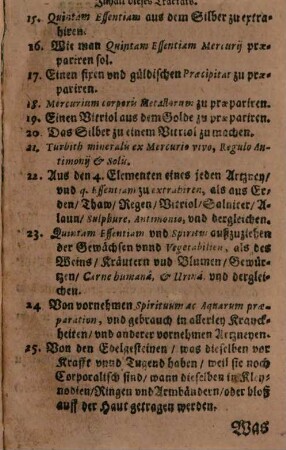 Inhalt dieses Tractats.
15. Quintam Essentiam aus dem Silber zu extra-
hiren.
16. Wie man Quintam Essentiam Mercurij præ-
pariren sol.
17. Einen fixen vnd güldischen Præcipitat zu præ-
pariren.
18. Mercurium corporis Metallorum zu præpariren.
19. Einen Vitriol aus dem Golde zu præpariren.
20. Das Silber zu einem Vitriol zu machen.
21. Turbith mineralis ex Mercurio vivo, Regulo An-
timonij & Solis.
22. Aus den 4. Elementen eines jeden Artzney/
vnd q. Essentiam zu extrahiren, als aus Er-
den/ Thaw/ Regen/ Vitriol/ Salniter/ A-
laun/ Sulphure, Antimonio, vnd dergleichen.
23. Quintam Essentiam vnd Spiritus auffzuziehen
der Gewächsen vnnd Vegetabilien, als des
Weins/ Kräutern vnd Blumen/ Gewür-
tzen/ Carne humanâ, & Urinâ, vnd derglei-
chen.
24. Von vornehmen Spirituum ac Aquarum præ-
paration, vnd gebrauch in allerley Kranck-
heiten/ vnd anderer vornehmen Artzneyen.
25. Von den Edelgesteinen/ was dieselben vor
Krafft vnnd Tugend haben/ weil sie noch
Corporalisch sind/ wann dieselben in Kley-
nodien/ Ringen vnd Armbändern/ oder bloß
auff der Haut getragen werden.
Was